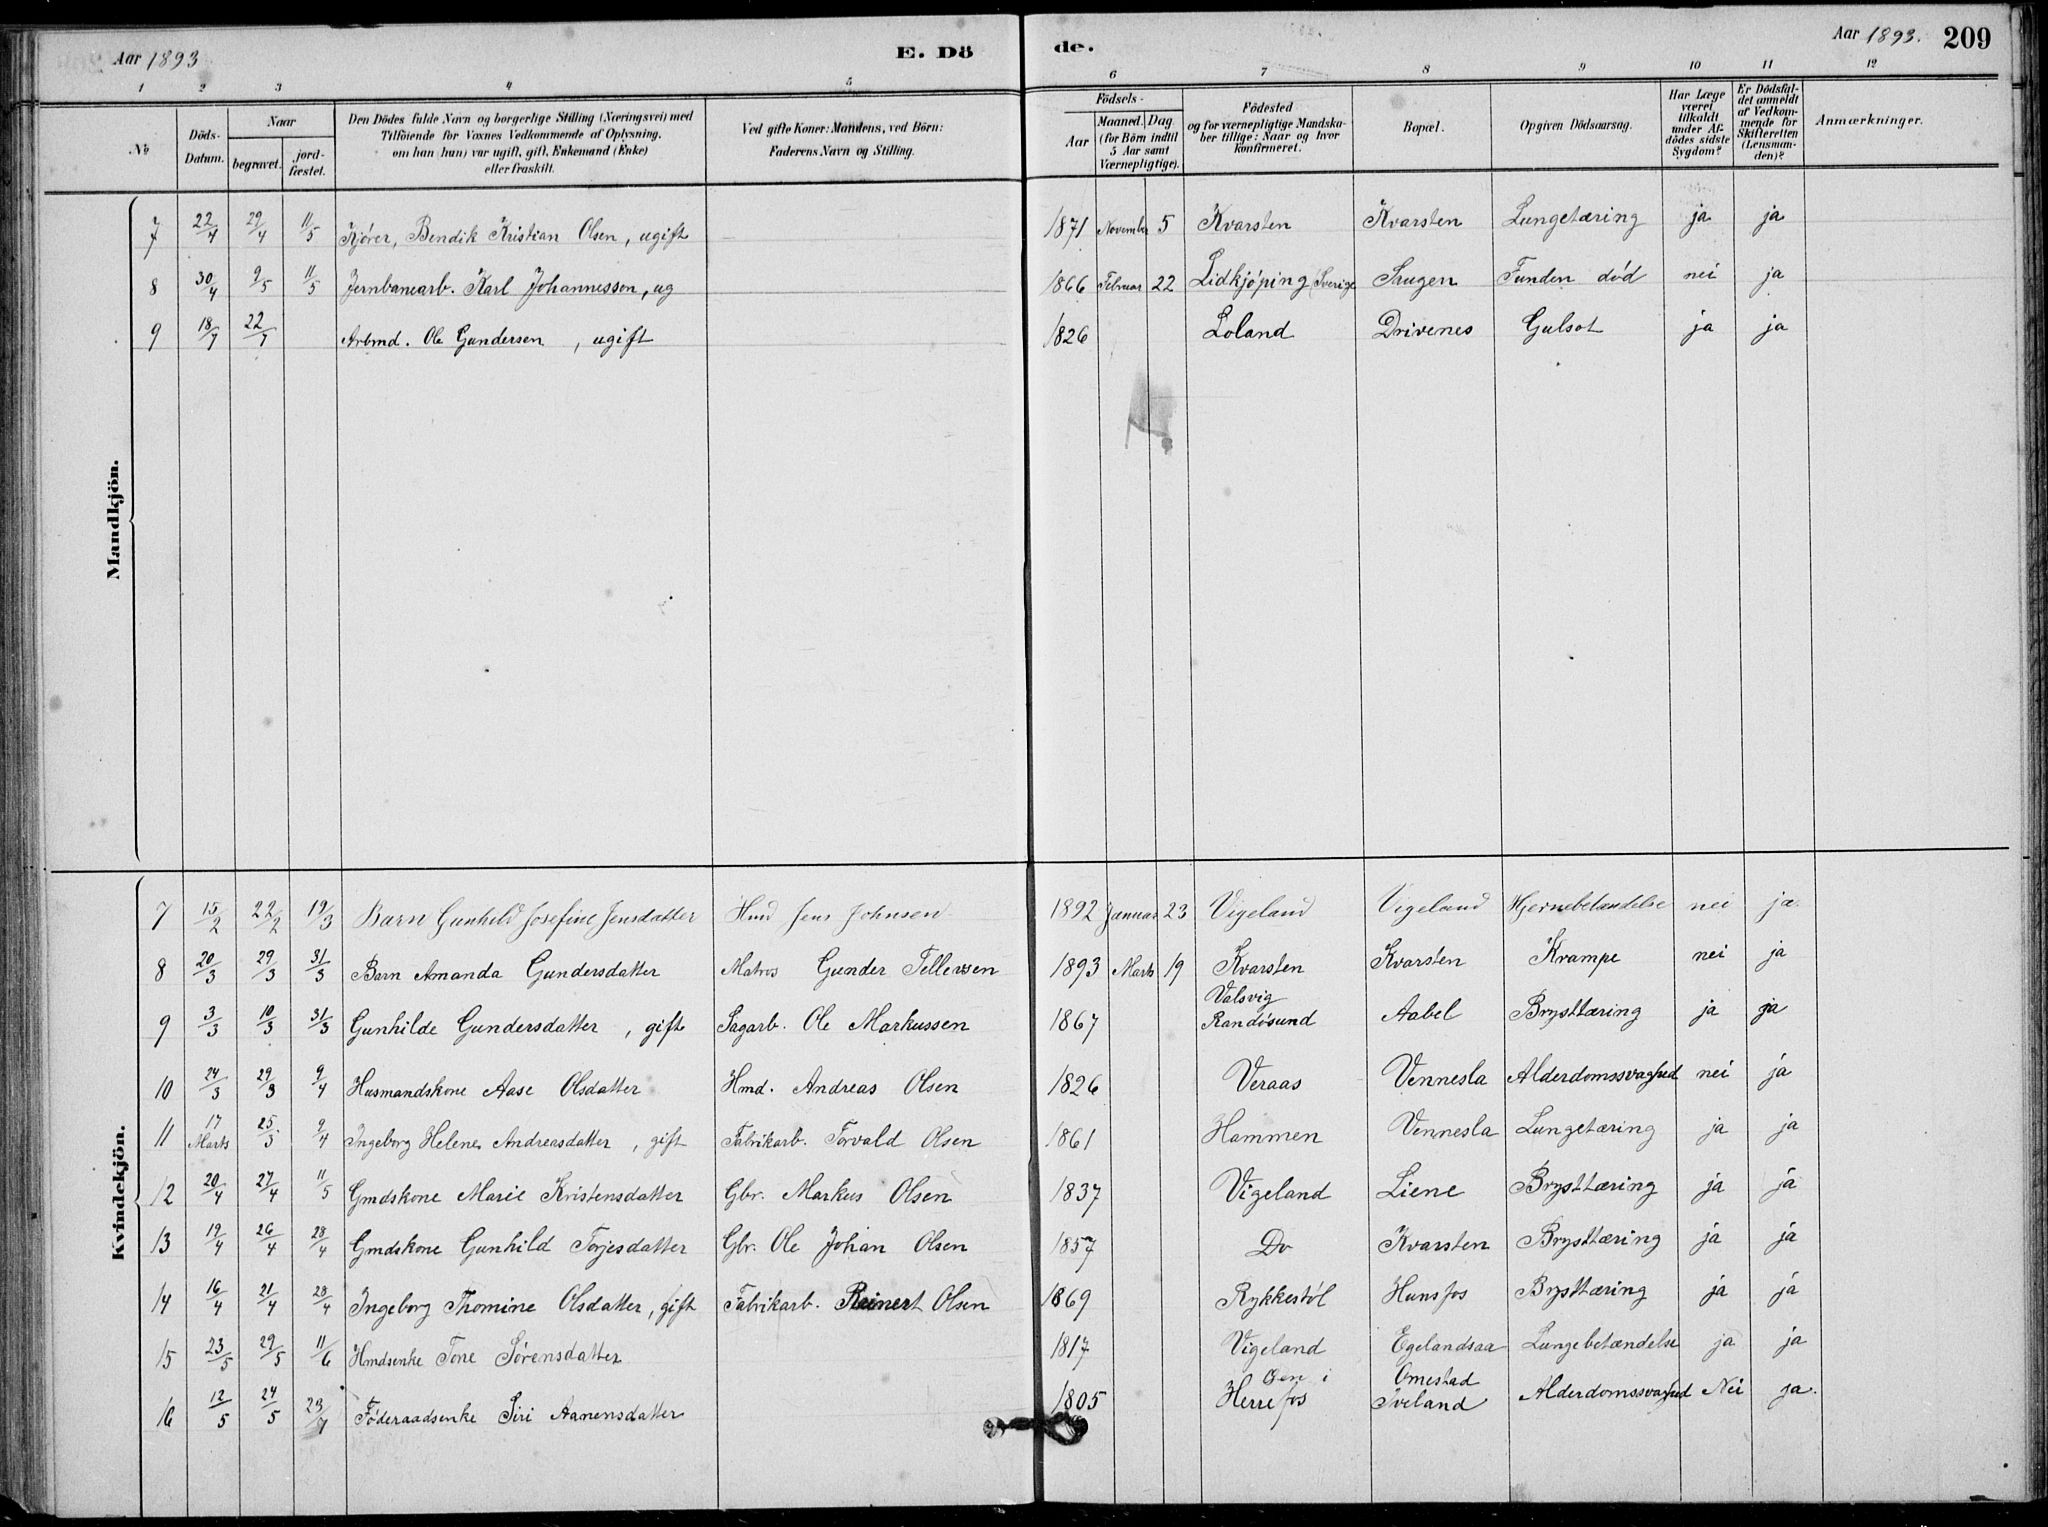 Aar 1893 E. Dö de. Aar 1893. 209
1 2 3 4 5 6 7 8 9 10 11 12
No Döds-Datum. Naar begravet. jordfæstet. Den Dödes fulde Navn og borgerlige Stilling (Næringsvei) med Tilföiende for Voxnes Vedkommende af Oplysning, om han (hun) var ugift, gift, Enkemand (Enke) eller fraskilt. Ved gifte Koner: Mandens, ved Börn: Faderens Navn og Stilling. Födsels- Aar Maaned. Dag (for Börn indtil 5 Aar samt Værnepligtige). Födested og for værnepligtige Mandskaber tillige: Naar og hvor konfirmeret. Bopæl. Opgiven Dödsaarsag. Har Læge været tilkaldt under Afdödes sidste Sygdom? Er Dödsfaldet anmeldt af Vedkommende for Skifteretten (Lensmanden)? Anmærkninger.
Mandkjön.
7 22/4 29/4 11/5 Kjører, Bendik Kristian Olsen, ugift 1871 November 5 Kvarsten Kvarsten Lungetæring ja ja
8 30/4 9/5 11/5 Jernbanearb. Karl Johannesson, ug 1866 Februar 22 Lidkjøping (Sverige Saugen Funden død nei ja
9 18/7 22/7 Arbmd. Ole Gundersen, ugift 1826 Loland Drivenes Gulsot ja ja
Kvindekjön.
7 15/2 22/2 19/3 Barn Gunhild Josefine Jensdatter Hmd Jens Johnsen 1892 Januar 23 Vigeland Vigeland Hjernebetændelse nei ja.
8 20/3 29/3 31/3 Barn Amanda Gundersdatter Matros Gunder Tellersen 1893 Marts 19 Kvarsten Kvarsten Krampe nei ja
9 3/3 10/3 31/3 Gunhilde Gundersdatter, gift Sagarb. Ole Markussen 1867 Valsvig Randøsund Aabel Brysttæring ja ja
10 24/3 29/3 9/4 Husmandskone Aase Olsdatter Hmd. Andreas Olsen 1826 Veraas Vennesla Alderdomssvaghed nei ja
11 17 Marts 25/3 9/4 Ingeborg Helene Andreasdatter, gift Fabrikarb. Torvald Olsen 1861 Hammen Vennesla Lungetæring ja ja
12 20/4 27/4 11/5 Gmdskone Marie Kristensdatter Gbr. Markus Olsen 1837 Vigeland Liene Brysttæring ja ja
13 19/4 26/4 28/4 Gmdskone Gunhild Torjesdatter Gbr. Ole Johan Olsen 1857 Do Kvarsten Brysttæring ja ja
14 16/4 21/4 28/4 Ingeborg Thomine Olsdatter, gift Fabrikarb. Reinert Olsen 1869 Rykkestøl Hunsfos Brysttæring ja ja
15 23/5 29/5 11/6 Hmdsenke Tone Sørensdatter 1817 Vigeland Egelandsaa Lungebetændelse ja ja
16 12/5 24/5 23/7 Føderaadsenke Siri Aanensdatter 1805 Øen i Herrefos Omestad Iveland Alderdomssvaghed Nei ja.